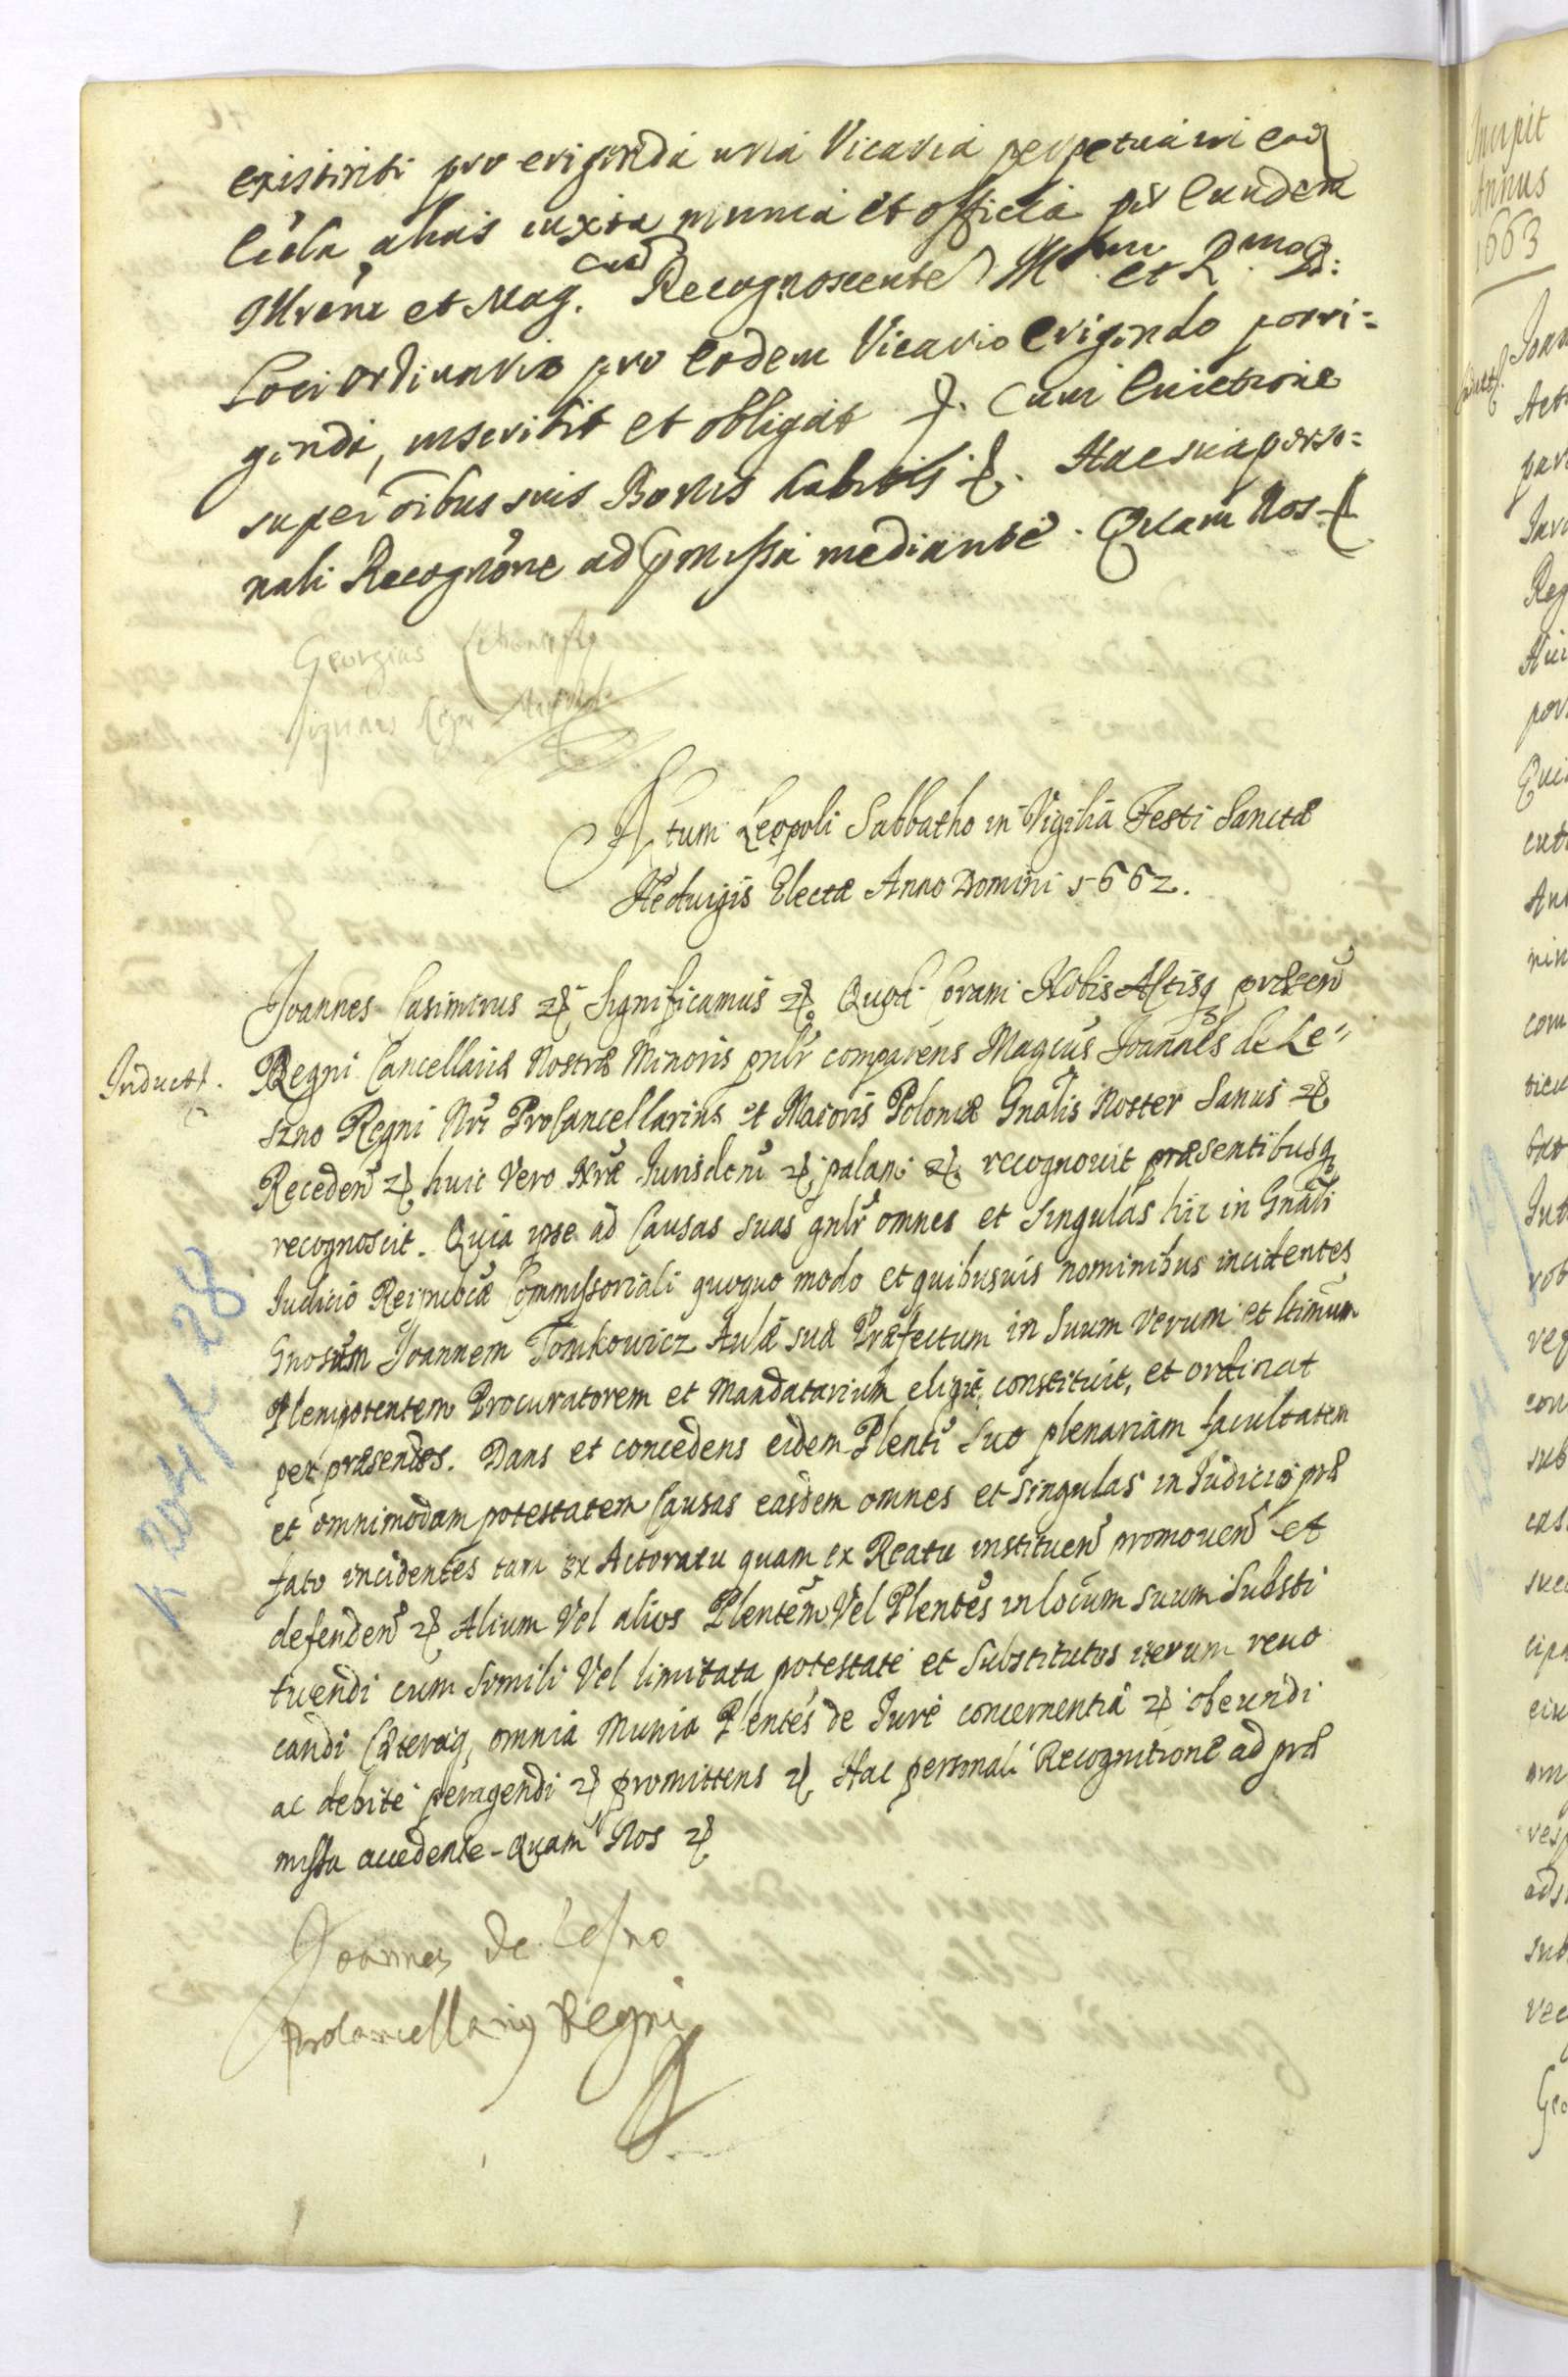 existenti pro erigenda una Vicaria perpetua in ead
Ecclã, alias iuxta munia et officia per Eundem
Illrem et Mag. cum Recognoscente et R.
Loci ordinario pro Eodem Vicario Erigendo porri=
genda, inscribit et obligat Cum Euictione
super oibus suis Bonis habitis Hac sua perso=
nali Recognõne ad pmissa mediante. Quam Nos
Georgius
Actum Leopoli Sabbatho in Vigilia Festi Sanctæ
Heduigis Electæ Anno Domini 1662.
Joannes Casimirus &c Significamus &c Quod Coram Nobis Actisq præsen
Induct.
Regni Cancellariæ Nostræ Minoris pnlr comparens Magcus Joannes de Le=
szno Regni Nri ProCancellarius et Maioris Poloniæ Gnalis Noster Sanus &c
Receden &c huic Vero Nræ Jurisdcni &c palam &c recognouit præsentibusq
recognoscit. Quia ipse ad Causas suas gnlr omnes et Singulas hic in Gnali
Judicio Reipublcæ Commissoriali quoquo modo et quibusuis nominibus incidentes
Gnosum Joannem Tomkowicz Aulæ suæ Præfectum in Suum Verum et ltimum
Plenipotentem Procuratorem et Mandatarium eligit, constituit, et ordinat
per præsentes. Dans et concedens eidem Plenti Suo plenariam facultatem
et omnimodam potestatem Causas easdem omnes et singulas in Judicio præ
fato incidentes tam ex Actoratu quam ex Reatu instituen promouen et
defenden &c Alium Vel alios Plentem Vel Plentes in locum suum Substi
tuendi cum Simili Vel limitata potestate et Substitutos iterum reuo
candi Cæteraq, omnia Munia Plentes de Jure concernentia &c obeundi
ac debite peragendi &c promittens &c Hac personali Recognitione ad præ
missa accedente - Quam Nos &c
Joannes de Lesno
Procancellarius Regni
K 204/I 28
Incipit
Annus
1663